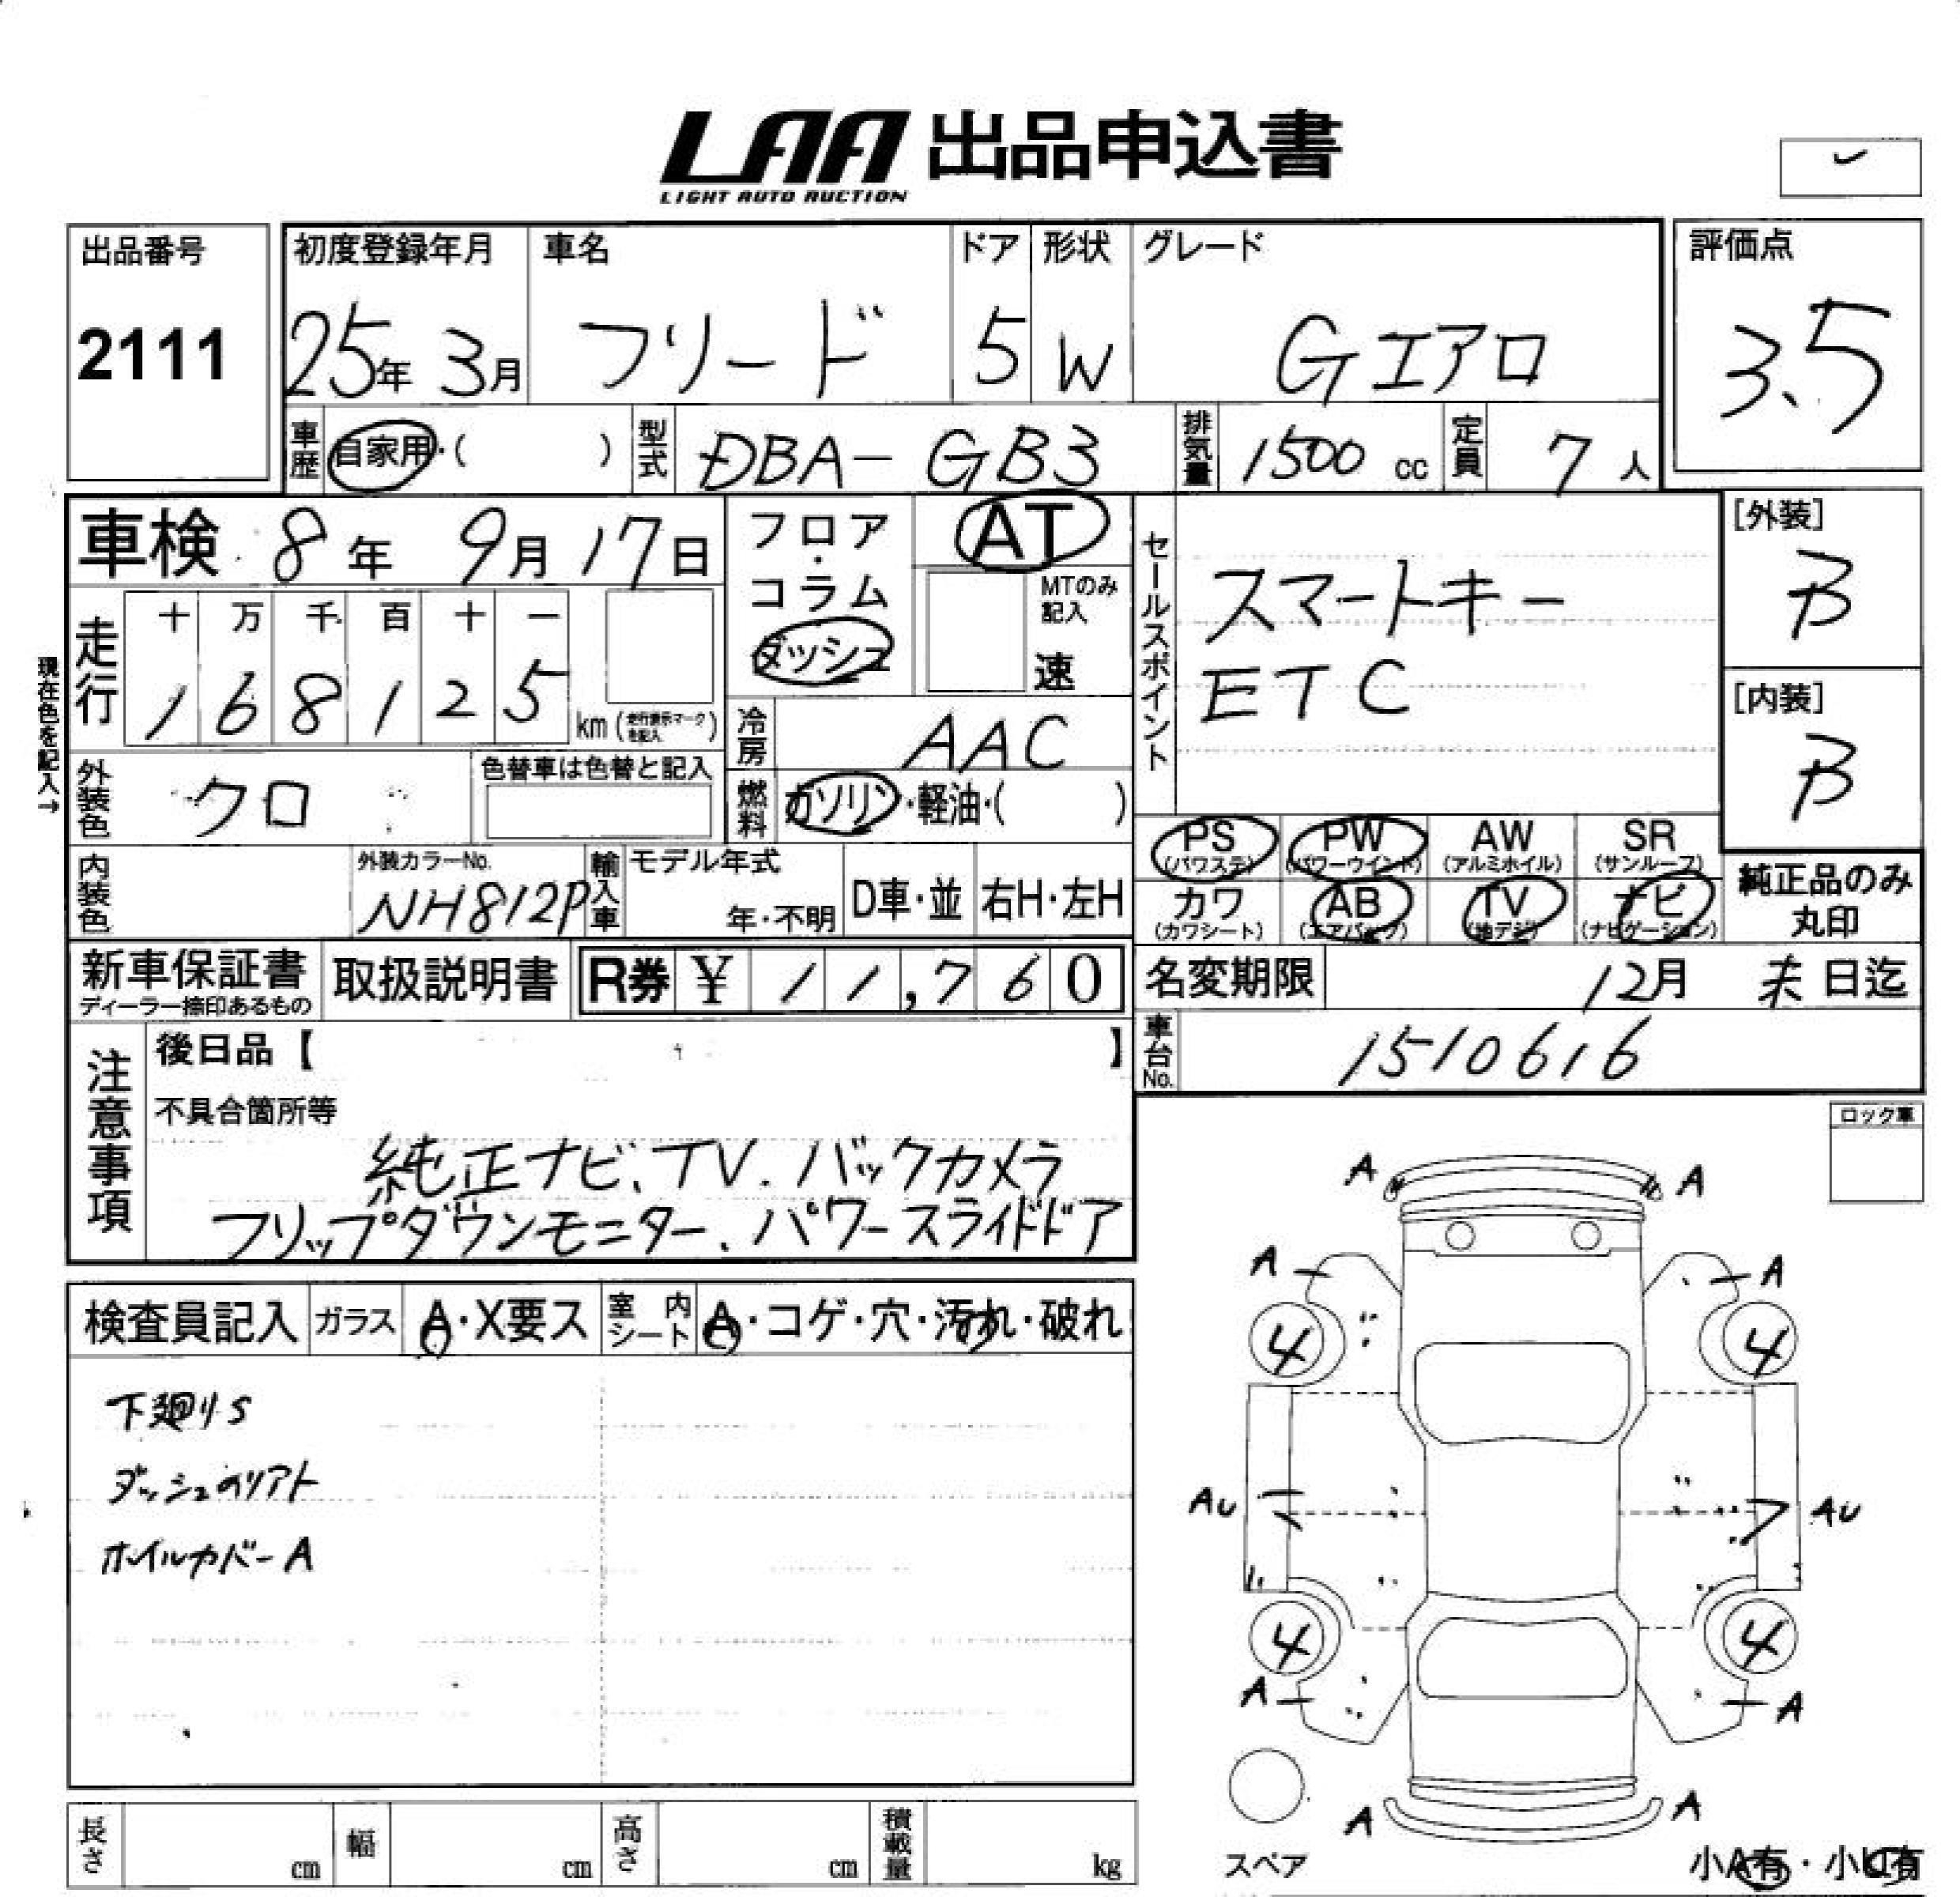 LAA 出品申込書
LIGHT AUTO AUCTION
出品番号
2111
初度登録年月
25年 3月
車名
フリード
ドア
5
形状
W
グレード
Gエアロ
評価点
3.5
車歴
自家用・( )
型式
DBA-GB3
排気量
1500 cc
定員
7 人
車検 8年 9月 17日
フロア・コラム
ダッシュ
AT
MTのみ記入
速
セールスポイント
スマートキー
ETC
[外装]
B
[内装]
B
現在色を記入→
走行
十 万 千 百 十 一
1 6 8 1 2 5
km (走行表示マークを記入)
冷房
AAC
外装色
クロ
色替車は色替と記入
燃料
ガソリン・軽油・( )
PS
(パワステ)
PW
(パワーウインド)
AW
(アルミホイル)
SR
(サンルーフ)
カワ
(カワシート)
AB
(エアバッグ)
TV
(地デジ)
ナビ
(ナビゲーション)
純正品のみ
丸印
内装色
外装カラーNo.
NH812P
輸入車
モデル年式
年・不明
D車・並
右H・左H
新車保証書
ディーラー捺印あるもの
取扱説明書
R券 ¥ 11,760
名変期限
12月 末日迄
車台No.
1510616
注意事項
後日品【 】
不具合箇所等
純正ナビ、TV、バックカメラ
フリップダウンモニター、パワースライドドア
ロック車
検査員記入
ガラス
A・X要ス
室内シート
A・コゲ・穴・汚れ・破れ
下廻りS
ダッシュのリアト
ホイルカバーA
A A
A A
4 4
AU AU
4 4
A A
A A
スペア
小A有・小U有
長さ
cm
幅
cm
高さ
cm
積載量
kg